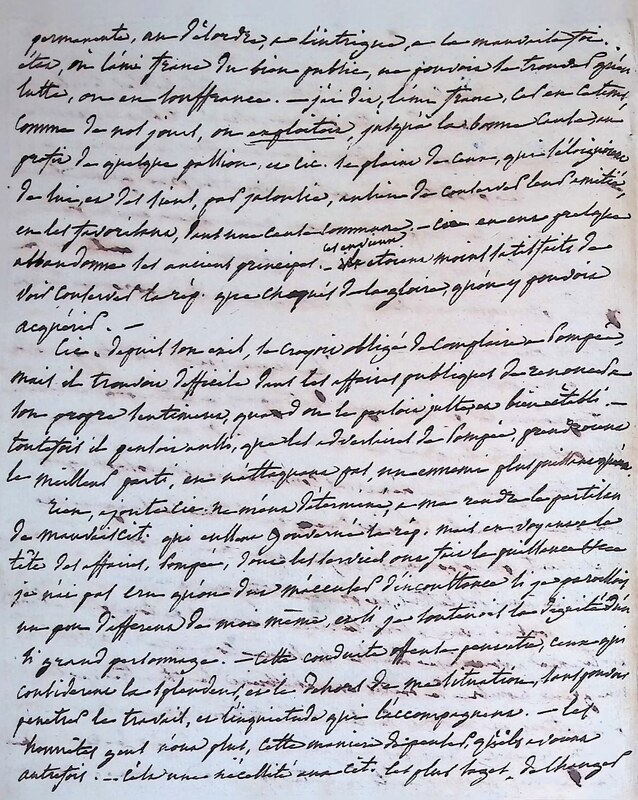 permanente, au désordre, a l'intrigue, a la mauvaise foi.
état, où l'ami franc du bien public, ne pouvoit se trouver qu'en
lutte, ou en souffrance. — j'ai dit, l'ami franc, car en ce tems
comme de nos jours, on exploitoit, jusqu'à la bonne cause, au
profit de quelque passion, et Cic. se plaint de ceux, qui s'éloignoient
de lui, et des siens, par jalousie, au lieu de conserver leur amitié,
en les favorisant, dans une cause commune. —
abandonné les anciens principes. — moins satisfaits de
voir conserver la rép. que choqués de la gloire, qu'on y pouvoit
acquérir. —
Cic. depuis son exil, se croyoit obligé de complaire a Pompée,
mais il trouvoit difficile dans les affaires publiques de renoncer a
son propre sentiment, quand on le pensoit juste, et bien établi. —
toutefois il pensoit aussi, que les adversaires de Pompée, prendroient
le meilleur parti, en n'attaquant pas, un ennemi plus puissant qu'eux.
Rien, ajoute Cic. ne m'eut déterminé, a me rendre le partisan
de mauvais cit. qui eussent gouverné la rép. mais en voyant a la
tête des affaires, Pompée, dont les services ont fait la puissance
je n'ai pas cru qu'on dut m'accuser d'inconstance si je paroissois
un peu différent de moi même, et si je soutenois la dignité d'un
si grand personnage. — Cette conduite offense peutetre, ceux qui
considerent la splendeur, et le dehors de ma situation, sans pouvoir
penetrer le travail, et l'inquietude qui l'accompagnent. — Les
honnêtes gens n'ont plus, cette maniere de penser, qu'ils avoient
autrefois. — C'est une nécessité aux cit. les plus sages, de changer